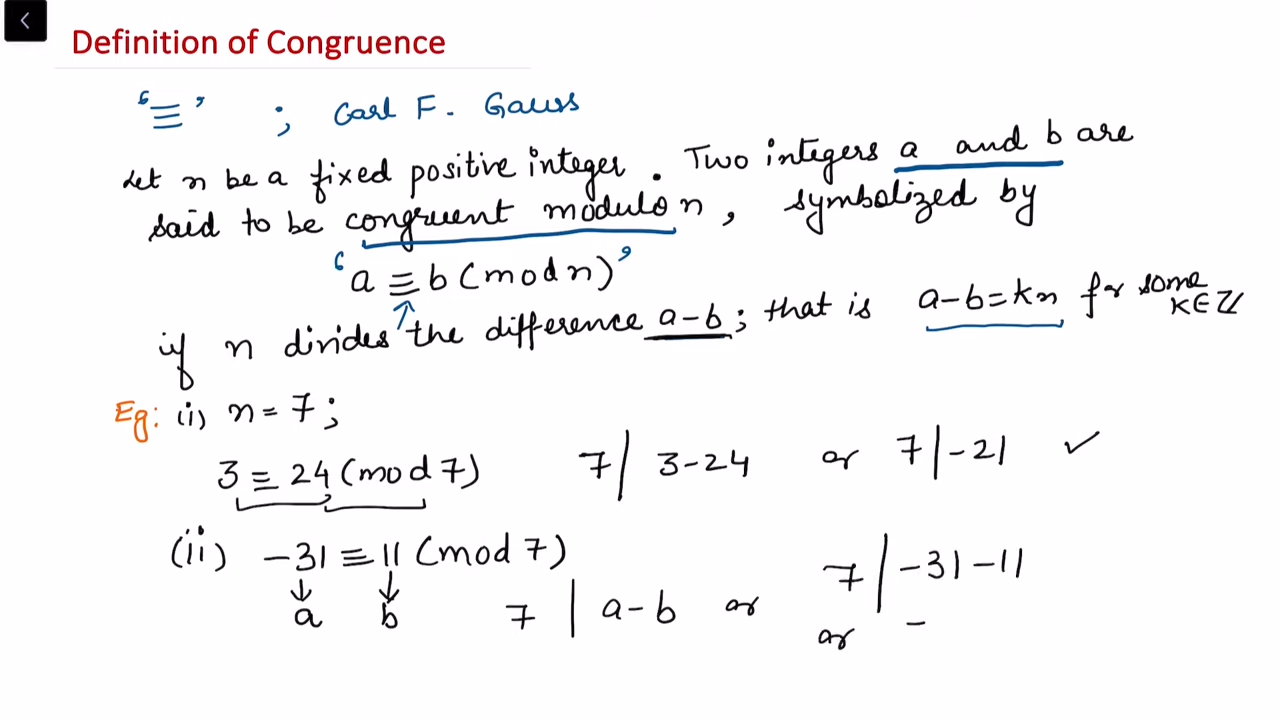 Definition of Congruence
"≡" ; Carl F. Gauss
Let n be a fixed positive integer. Two integers a and b are
said to be congruent modulo n, symbolized by
'a ≡ b (mod n)'
if n divides the difference a-b; that is a-b=kn for some k∈ℤ
Eg: (i) n=7;
3 ≡ 24 (mod 7) 7 | 3-24 or 7 | -21 ✓
(ii) -31 ≡ 11 (mod 7) 7 | -31-11
a b 7 | a-b or
or -